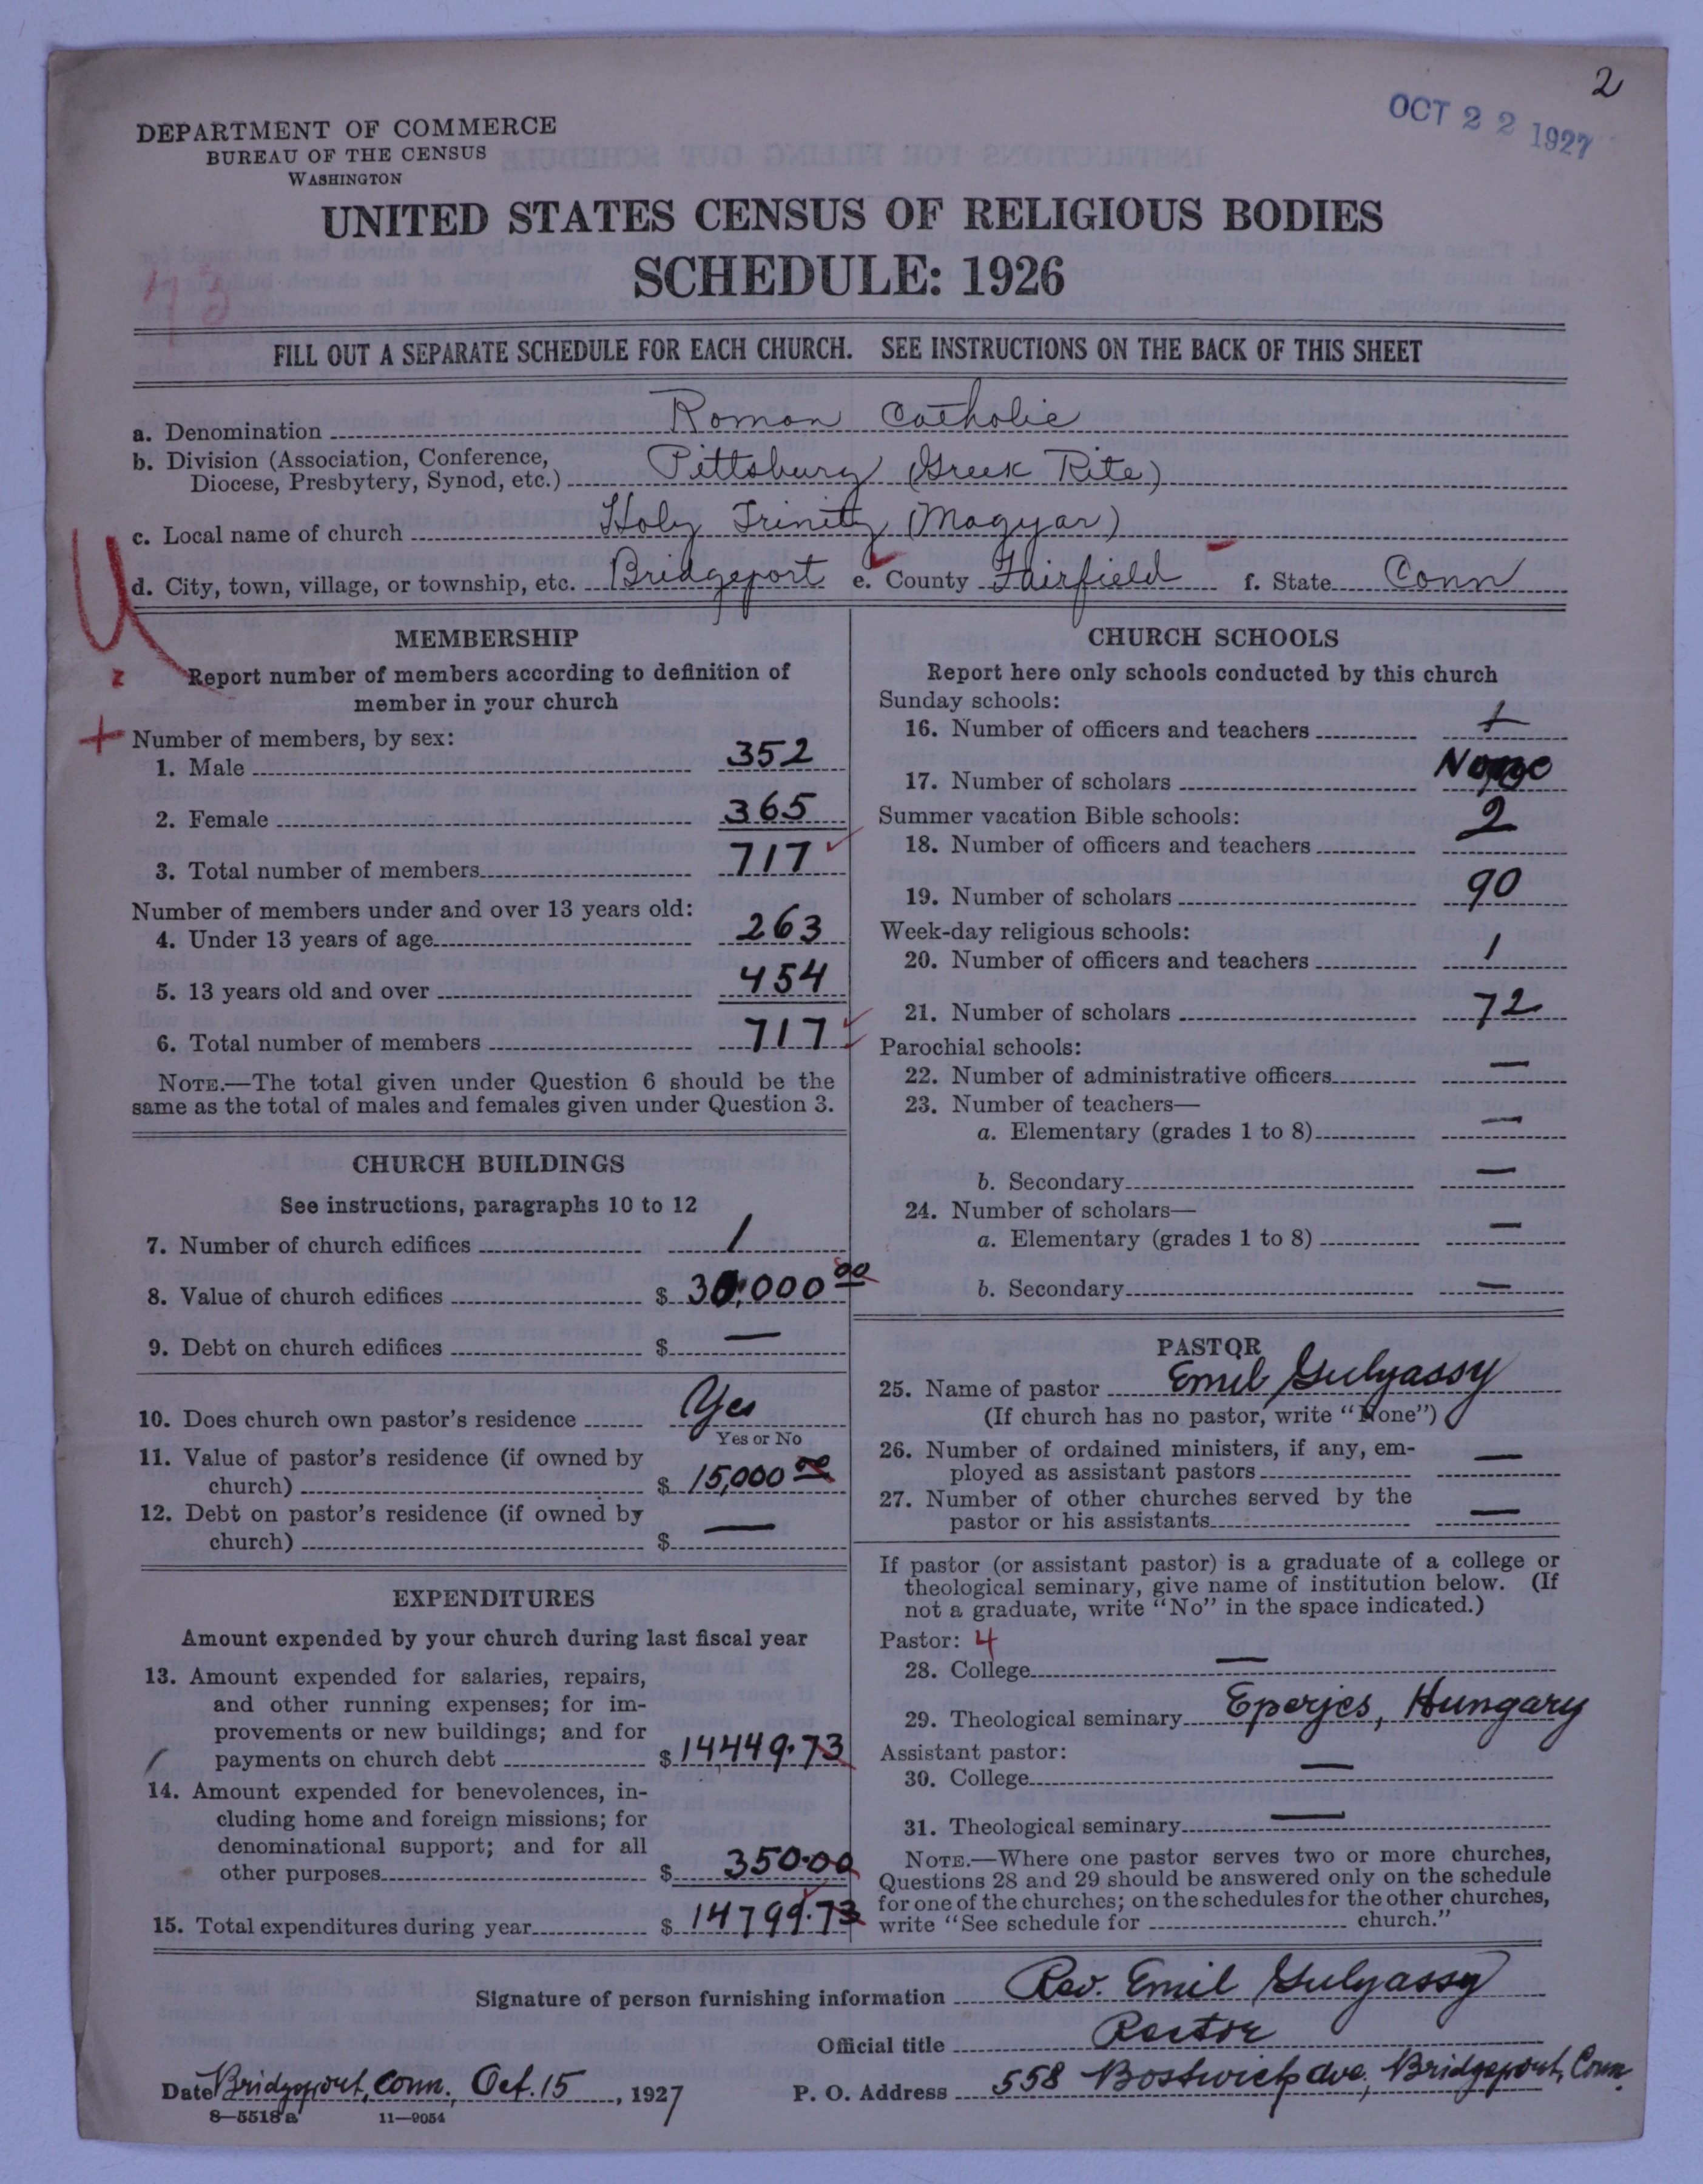 2
OCT 22 1927
DEPARTMENT OF COMMERCE
BUREAU OF THE CENSUS
WASHINGTON
UNITED STATES CENSUS OF RELIGIOUS BODIES
SCHEDULE: 1926
FILL OUT A SEPARATE SCHEDULE FOR EACH CHURCH. SEE INSTRUCTIONS ON THE BACK OF THIS SHEET
a. Denomination Roman Catholic
b. Division (Association, Conference,
Diocese, Presbytery, Synod, etc.) Pittsburg (Greek Rite)
c. Local name of church Holy Trinity (Magyar)
d. City, town, village, or township, etc. Bridgeport e. County Fairfield f. State Conn
MEMBERSHIP
Report number of members according to definition of
member in your church
Number of members, by sex:
1. Male 352
2. Female 365
3. Total number of members 717
Number of members under and over 13 years old:
4. Under 13 years of age 263
5. 13 years old and over 454
6. Total number of members 717
NOTE.—The total given under Question 6 should be the
same as the total of males and females given under Question 3.
CHURCH BUILDINGS
See instructions, paragraphs 10 to 12
7. Number of church edifices 1
8. Value of church edifices $ 30,000 00
9. Debt on church edifices $ —
10. Does church own pastor's residence Yes
Yes or No
11. Value of pastor's residence (if owned by
church) $ 15,000 00
12. Debt on pastor's residence (if owned by
church) $ —
EXPENDITURES
Amount expended by your church during last fiscal year
13. Amount expended for salaries, repairs,
and other running expenses; for im-
provements or new buildings; and for
payments on church debt $ 14449.73
14. Amount expended for benevolences, in-
cluding home and foreign missions; for
denominational support; and for all
other purposes $ 350.00
15. Total expenditures during year $ 14799.73
CHURCH SCHOOLS
Report here only schools conducted by this church
Sunday schools:
16. Number of officers and teachers
17. Number of scholars None
Summer vacation Bible schools:
18. Number of officers and teachers 2
19. Number of scholars 90
Week-day religious schools:
20. Number of officers and teachers 1
21. Number of scholars 72
Parochial schools:
22. Number of administrative officers —
23. Number of teachers—
a. Elementary (grades 1 to 8) —
b. Secondary —
24. Number of scholars—
a. Elementary (grades 1 to 8) —
b. Secondary —
PASTOR
25. Name of pastor Emil Gulyassy
(If church has no pastor, write "None")
26. Number of ordained ministers, if any, em-
ployed as assistant pastors —
27. Number of other churches served by the
pastor or his assistants —
If pastor (or assistant pastor) is a graduate of a college or
theological seminary, give name of institution below. (If
not a graduate, write "No" in the space indicated.)
Pastor: 4
28. College —
29. Theological seminary Eperjes, Hungary
Assistant pastor:
30. College —
31. Theological seminary —
NOTE.—Where one pastor serves two or more churches,
Questions 28 and 29 should be answered only on the schedule
for one of the churches; on the schedules for the other churches,
write "See schedule for church."
Signature of person furnishing information Rev. Emil Gulyassy
Official title Rector
Date Bridgeport, Conn., Oct. 15, 1927 P. O. Address 558 Bostwick ave, Bridgeport, Conn.
8—5518 a 11—9054